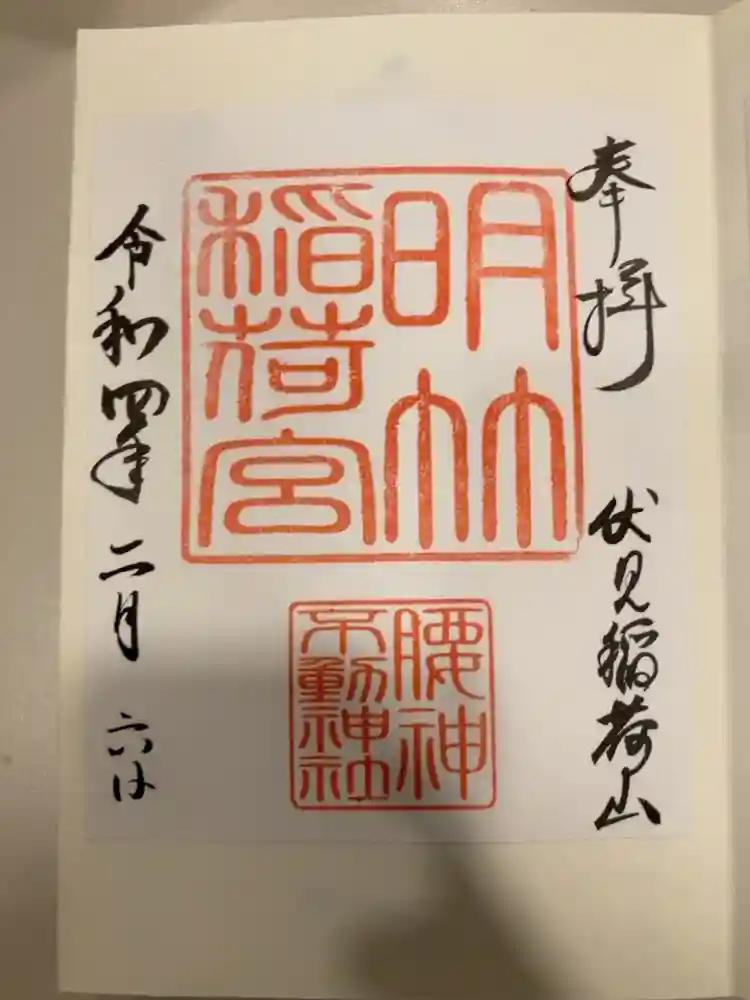 奉拝
伏見稲荷山
明竹
稲荷宮
腰神
不動神社
令和四年二月六日